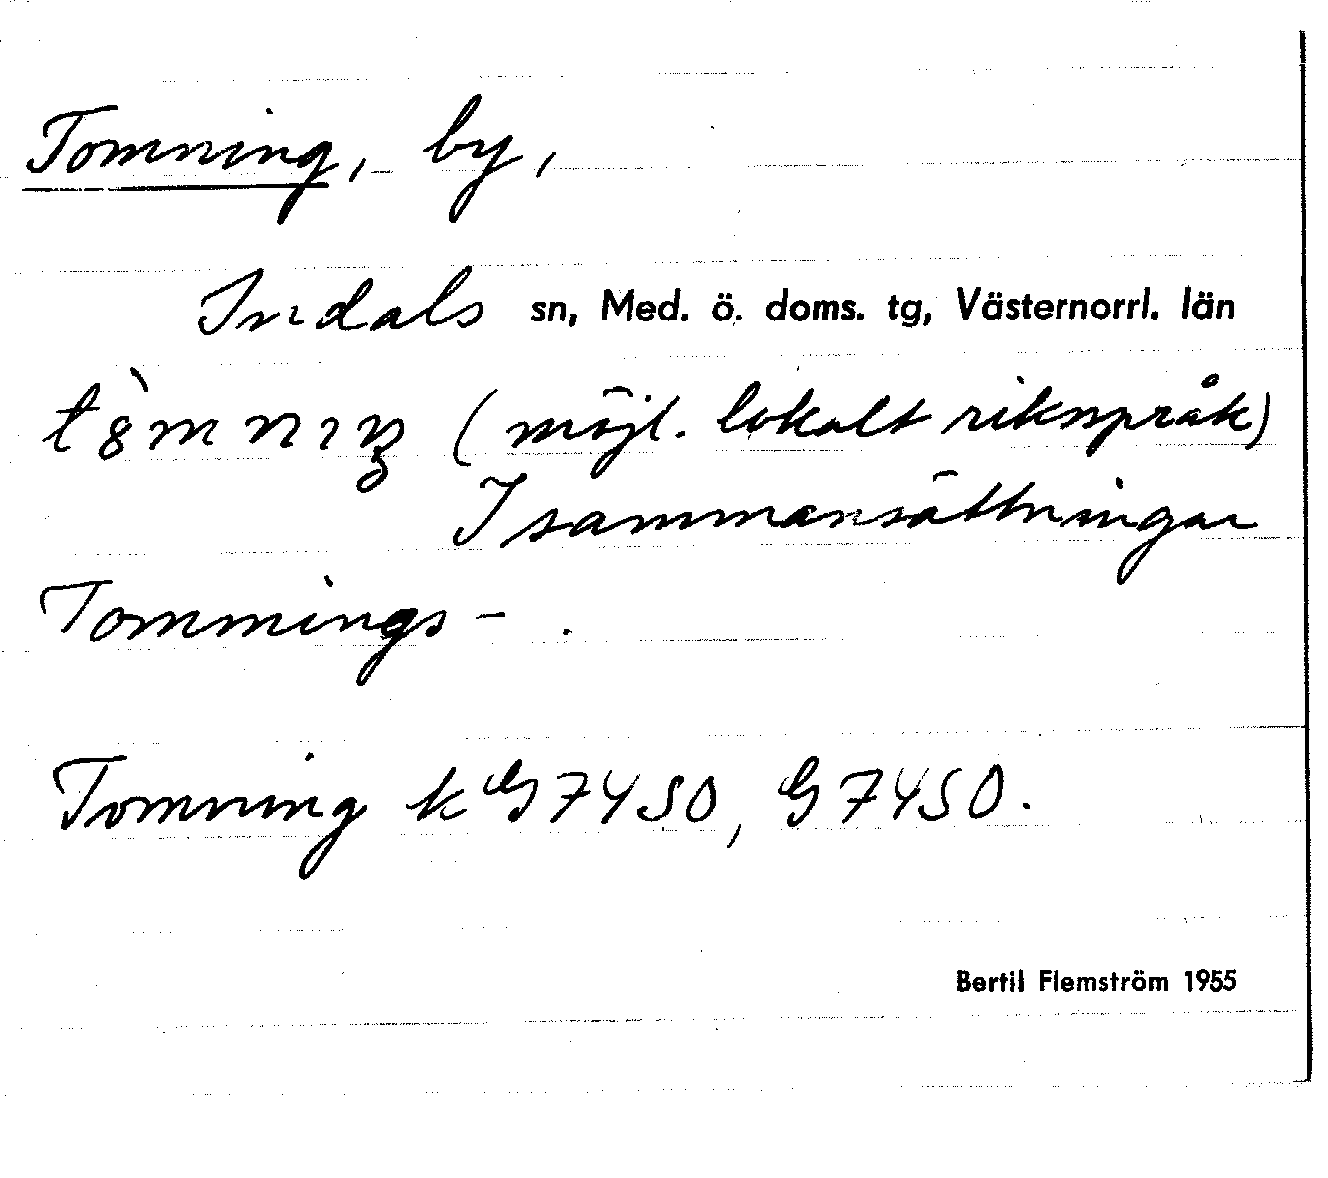 Tomning, by,
Indals sn, Med. ö. doms. tg, Västernorrl. län
tȣ̀mnıŋ (möjl. lokalt riksspråk)
I sammansättningar
Tomnings- .
Tomning k G7450, G7450.
Bertil Flemström 1955